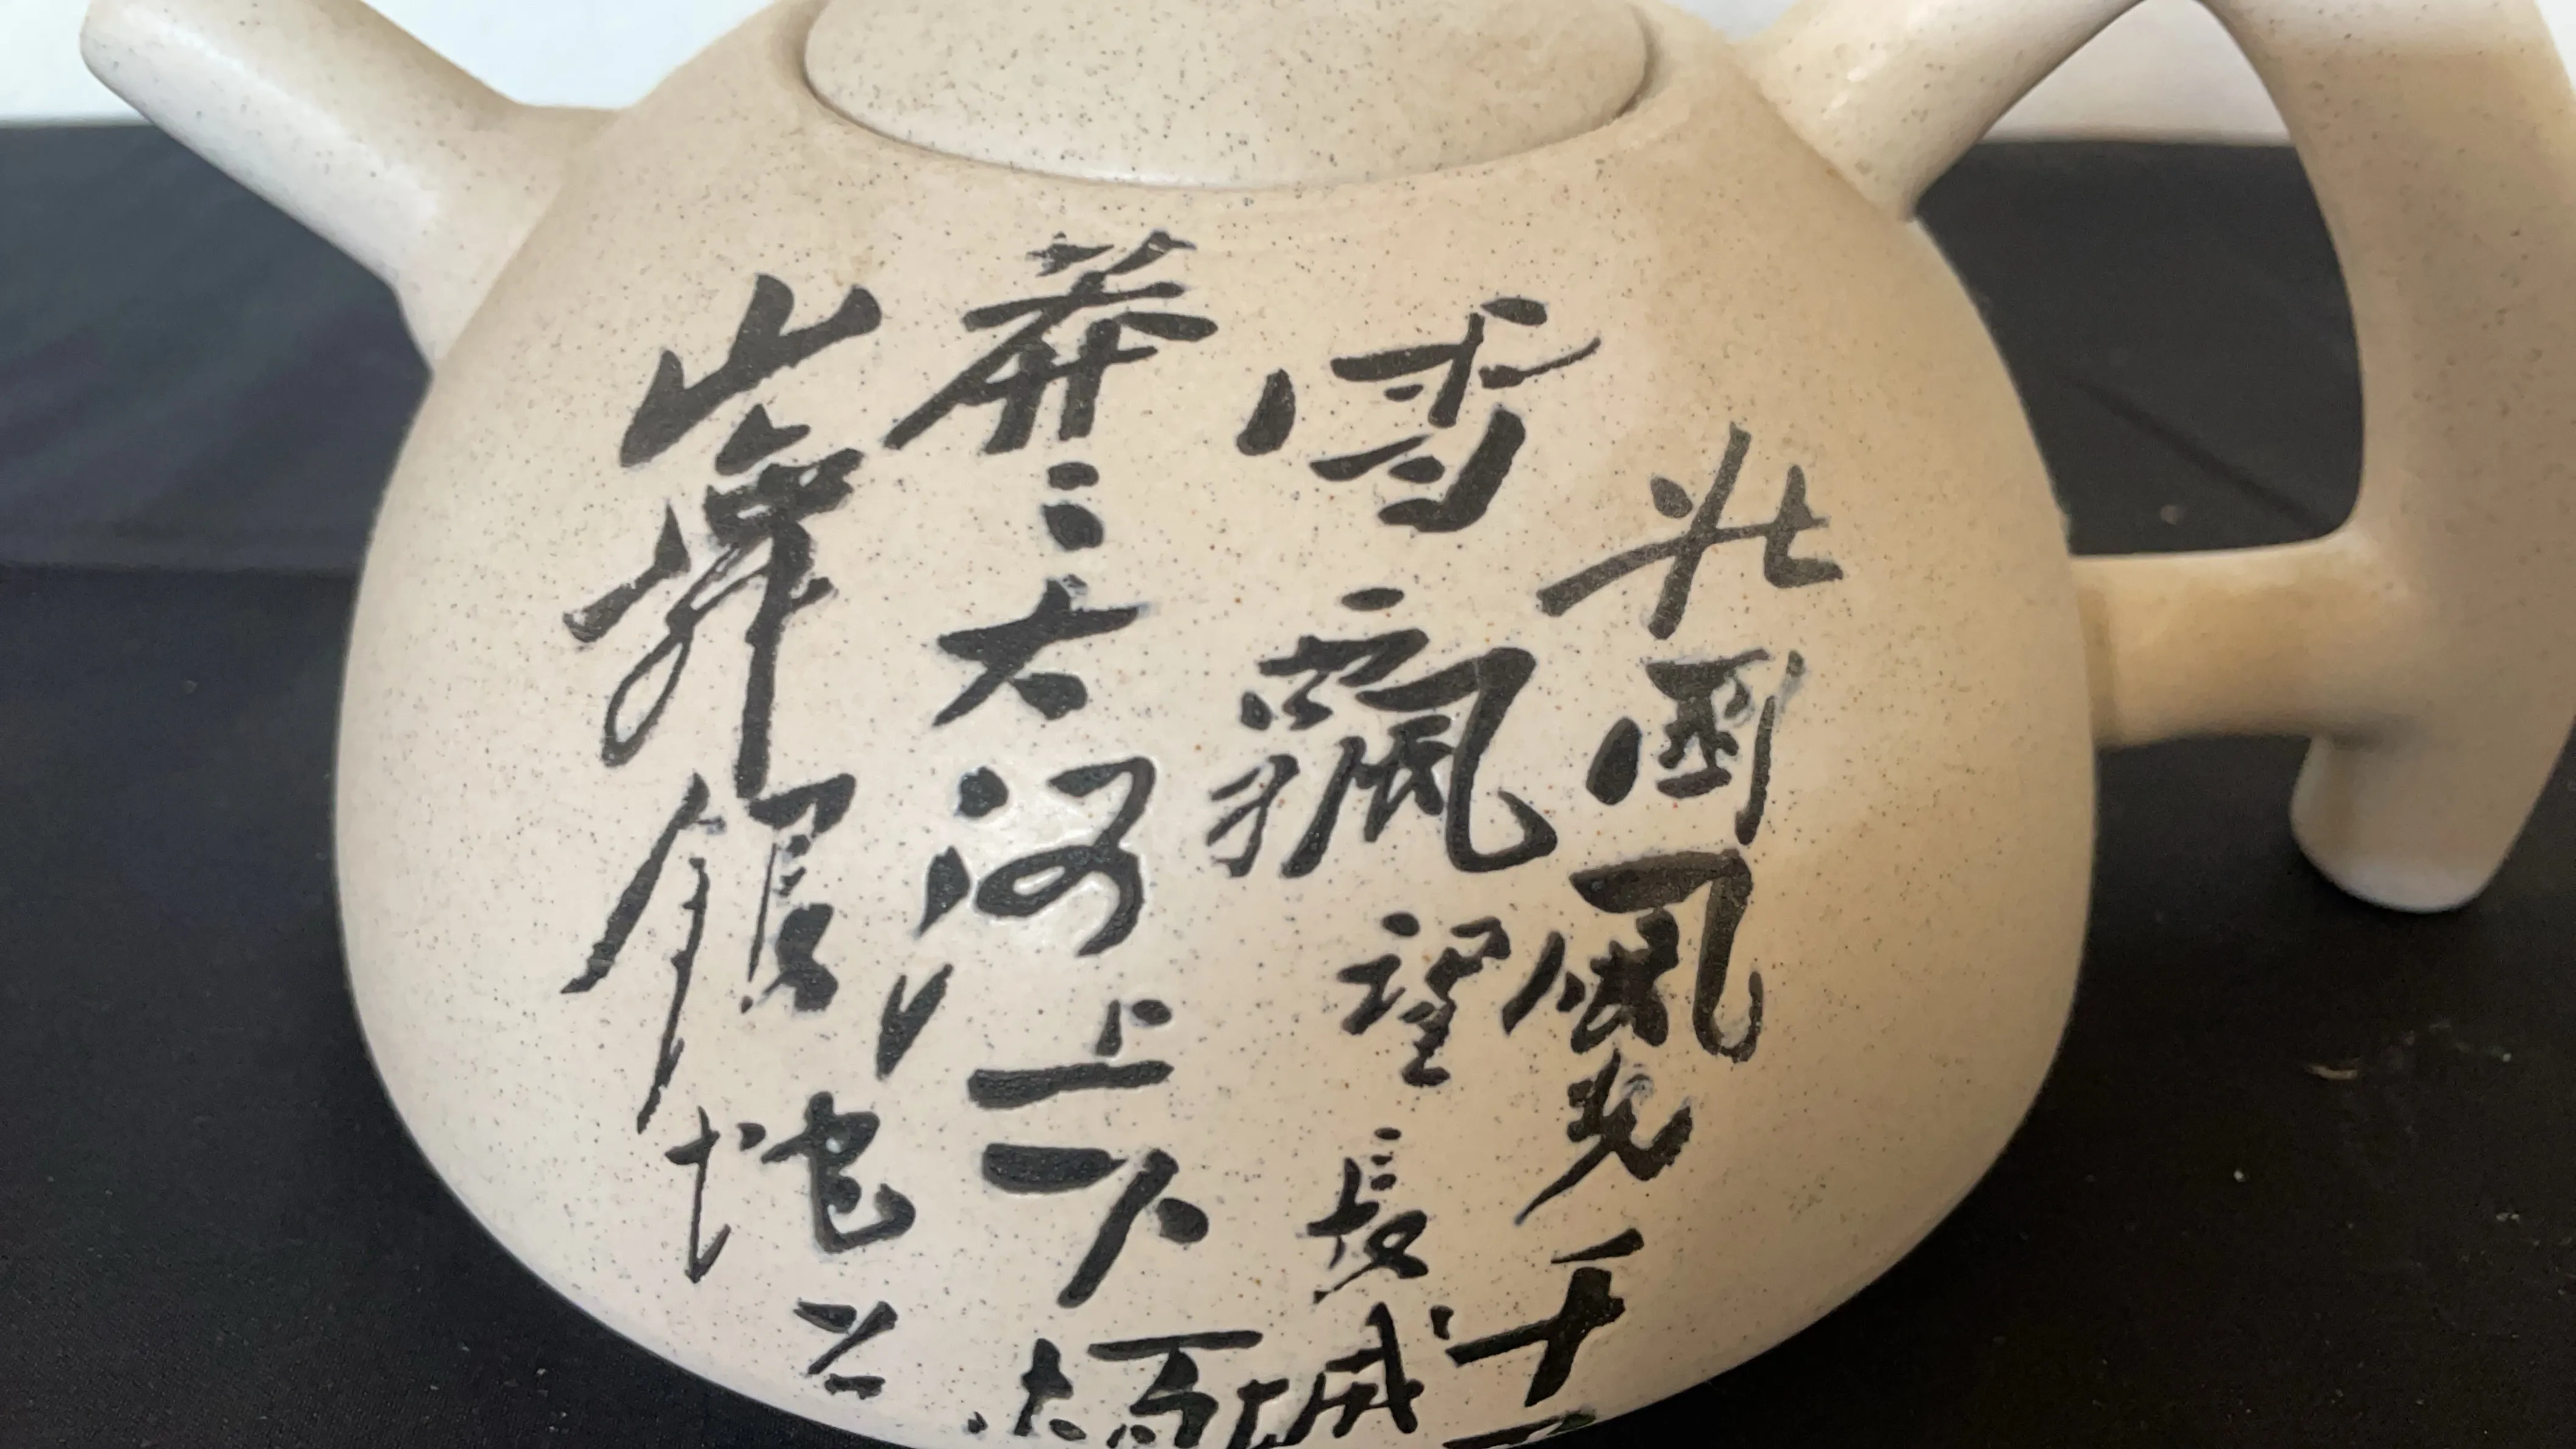 北國風光千
雪飄望長城
莽〻大河上下
山舞銀蛇